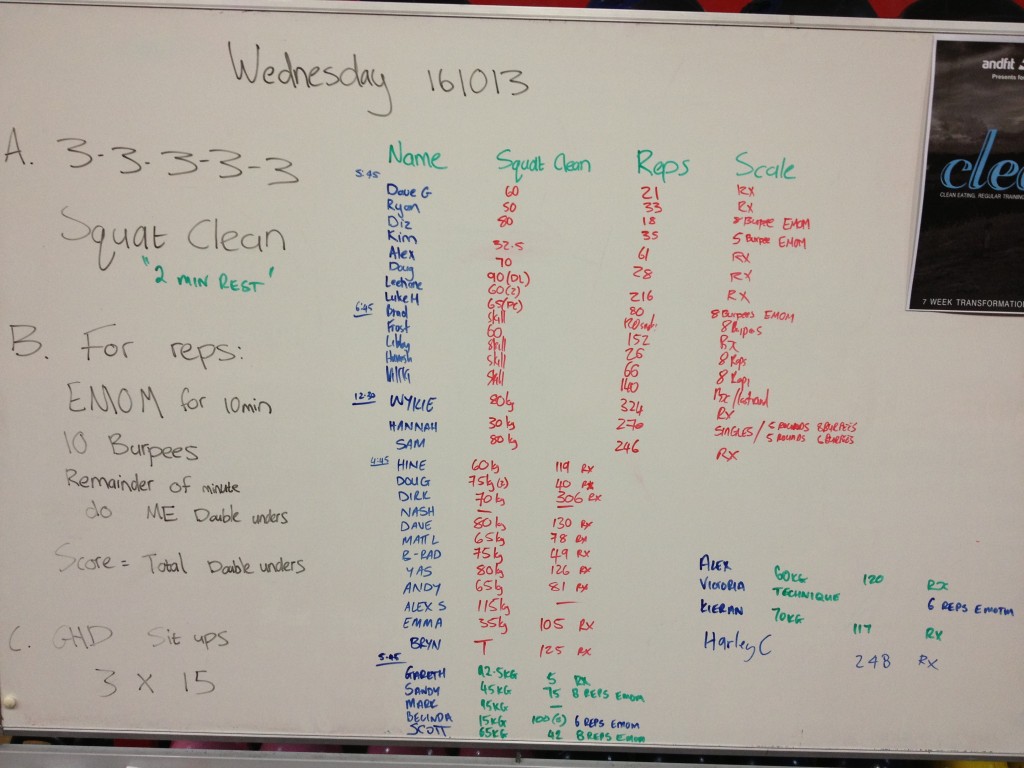 Wednesday 161013
A. 3-3-3-3-3
Squat Clean
"2 MIN REST"
B. For reps:
EMOM for 10min
10 Burpees
Remainder of minute
do ME Double unders
Score = Total Double unders
C. GHD Sit ups
3 x 15
Name Squat Clean Reps Scale
5:45
Dave G 60 21 RX
Ryan 50 33 RX
Diz 80 18 8 Burpee EMOM
Kim 32.5 35 5 Burpee EMOM
Alex 70 61 RX
Doug 90(DL) 28 RX
60(2)
Luke H 65(PC) 216 RX
6:45
Brad Skill 80 8 Burpees EMOM
Frost 60
Libby Skill 152 RX
Hamish Skill 26 8 Reps
Skill 66 8 Reps
140
12:30
WYLIE 80kg 324 RX
HANNAH 30kg 270 SINGLES/ 5 ROUNDS 8 BURPEES
5 ROUNDS 6 BURPEES
SAM 80kg 246 RX
4:45
HINE 60kg 119 RX
DOUG 75kg(2) 40 RX
DIRK 70kg 306 RX
NASH —
DAVE 80kg 130 RX
MATT L 65kg 78 RX
B-RAD 75kg 49 RX
YAS 80kg 126 RX
ANDY 65kg 81 RX
ALEX S 115kg —
EMMA 35kg 105 RX
BRYN T 125 RX
5:45
GARETH 42.5KG 5 RX
SANDY 45KG 75 8 REPS EMOM
MARK 95KG —
BELINDA 15KG 100(S) 6 REPS EMOM
SCOTT 65KG 42 8 REPS EMOM
ALEX 60KG 120 RX
VICTORIA TECHNIQUE 6 REPS EMOTM
KIERAN 70KG 117 RX
Harley C 248 RX
andfit
Presents
clea
CLEAN EATING. REGULAR TRAINING
7 WEEK TRANSFORMATIO